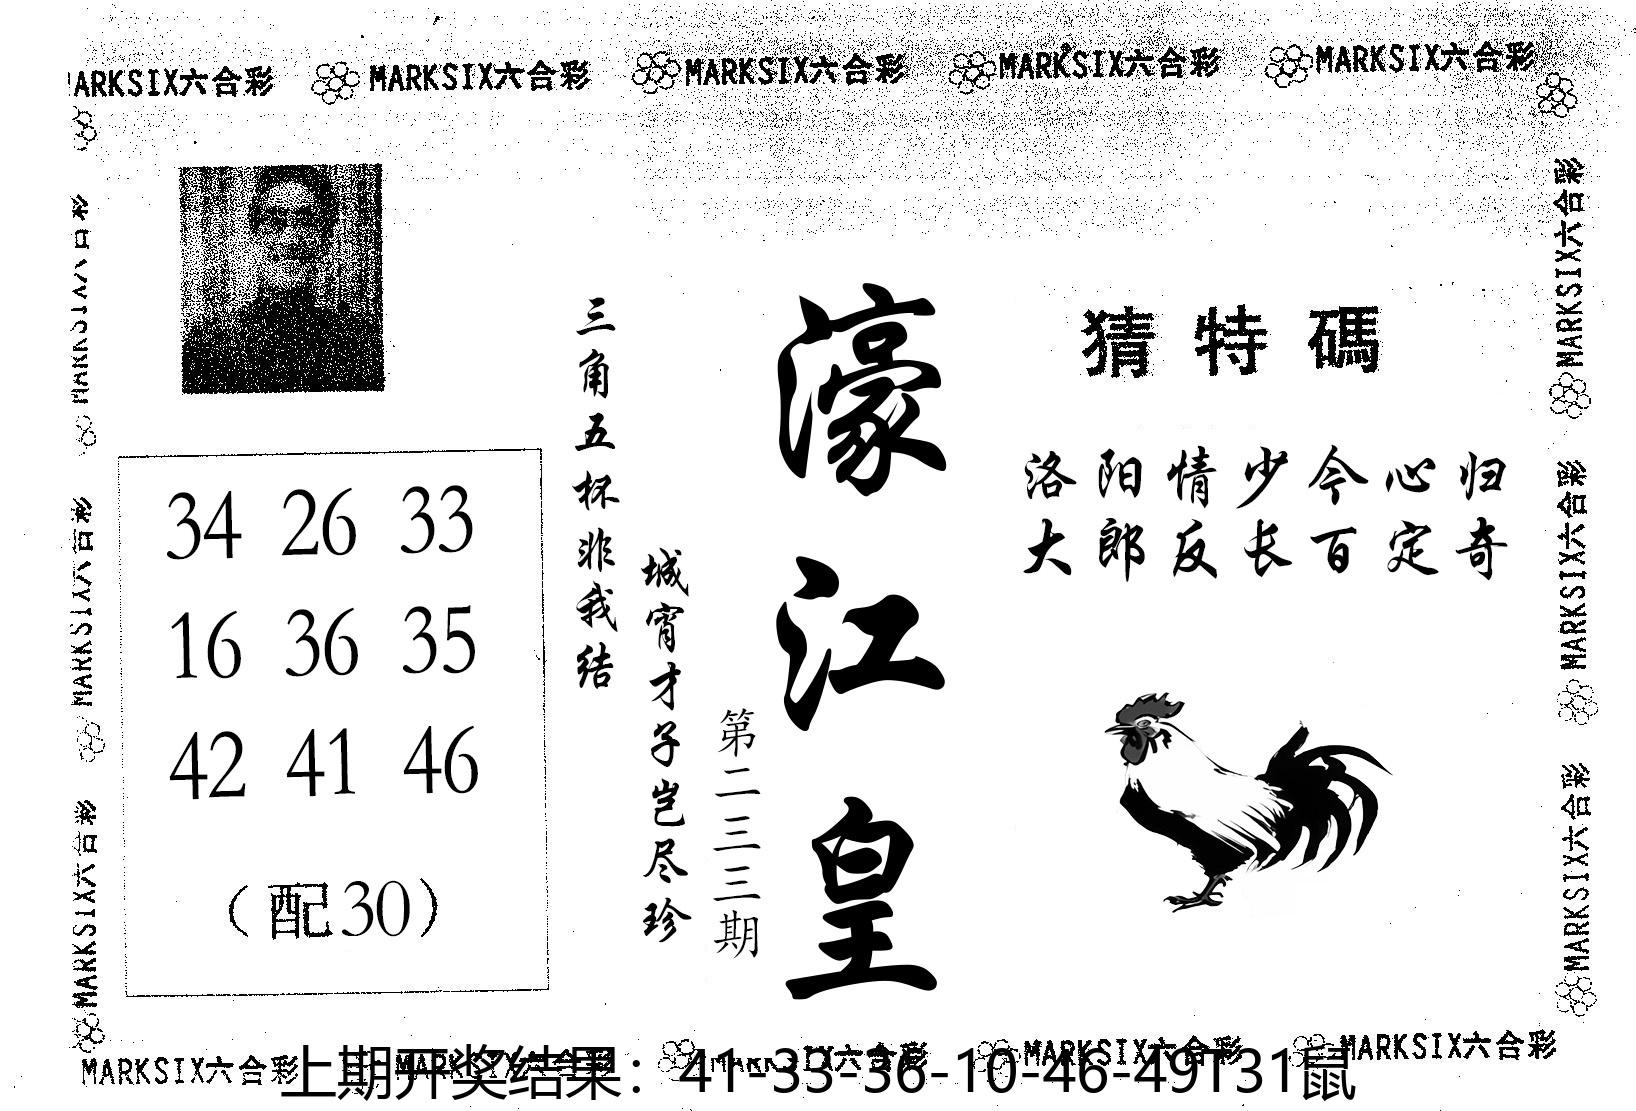 MARKSIX六合彩 MARKSIX六合彩 MARKSIX六合彩 MARKSIX六合彩 MARKSIX六合彩
MARKSIX六合彩
MARKSIX六合彩
MARKSIX六合彩
34 26 33
16 36 35
42 41 46
（配30）
三角五杯非我结
城宵才子岂尽珍
第二三三期
濠江皇
猜特碼
洛阳情少今心归
大郎反长百定奇
MARKSIX六合彩
MARKSIX六合彩
MARKSIX六合彩
MARKSIX六合彩 MARKSIX六合彩 MARKSIX六合彩 MARKSIX六合彩 MARKSIX六合彩
上期开奖结果：41-33-36-10-46-49T31鼠